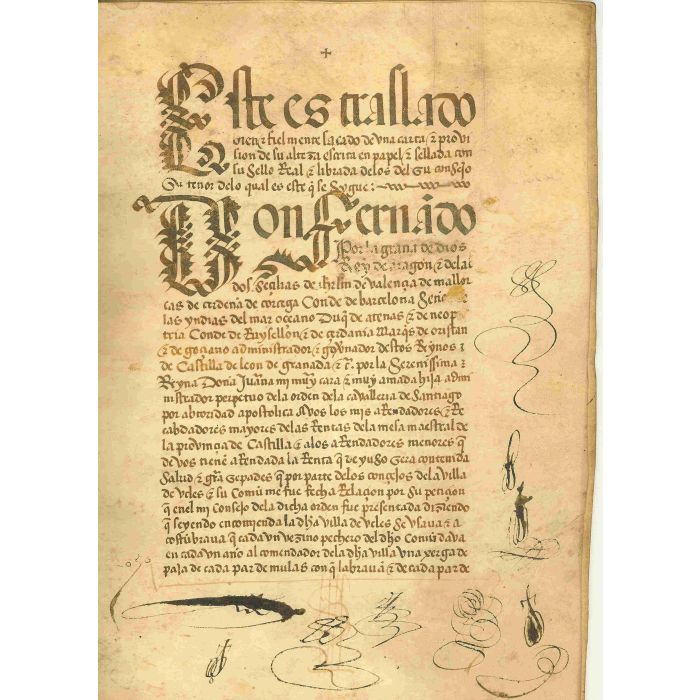 Este es traslado
bien & fielmente sacado de vna carta & provi
sion de su alteza escrita en papel & sellada con
su Sello Real & librada de los del Su consejo
Su tenor de lo qual es este q̃ se sygue:
Don Fernãdo
Por la graçia de dios
Rey de aragon & de las
dos Seçilias de ihrlm de valençia de mallor
cas de çerdeña de corçega Conde de barcelona Señor
las yndias del mar oceano Duq̃ de atenas & de neop
tria Conde de Ruysellon & de çerdania Marq̃s de oristan
& de goçiano administrador & governador destos Reynos
de Castilla de leon de granada & c̃. por la Serenissima
Reyna Doña Juana mi muy cara & muy amada hija admi
nistrador perpetuo de la orden de la cavalleria de Santiago
por abtoridad apostolica A vos los mis aRendadores & Re
cabdadores mayores de las Rentas de la mesa maestral de
la provinçia de Castilla & a los aRendadores menores q̃
de vos tiene aRendada la Renta q̃ de yuso Sera contenida
Salud & grã Sepades q̃ por parte de los conçejos de la villa
de vcles & su Comũ me fue fecha Relaçion por su petiçion
q̃ en el mi Consejo de la dicha orden fue presentada diziendo
q̃ seyendo encomienda la dha villa de vcles Se vsava & a
costũbrava q̃ cada vn vezino pechero del dho Comũ dava
en cada vn año al comendador de la dha villa vna xerga de
paja de cada par de mulas con q̃ labravã & de cada par de